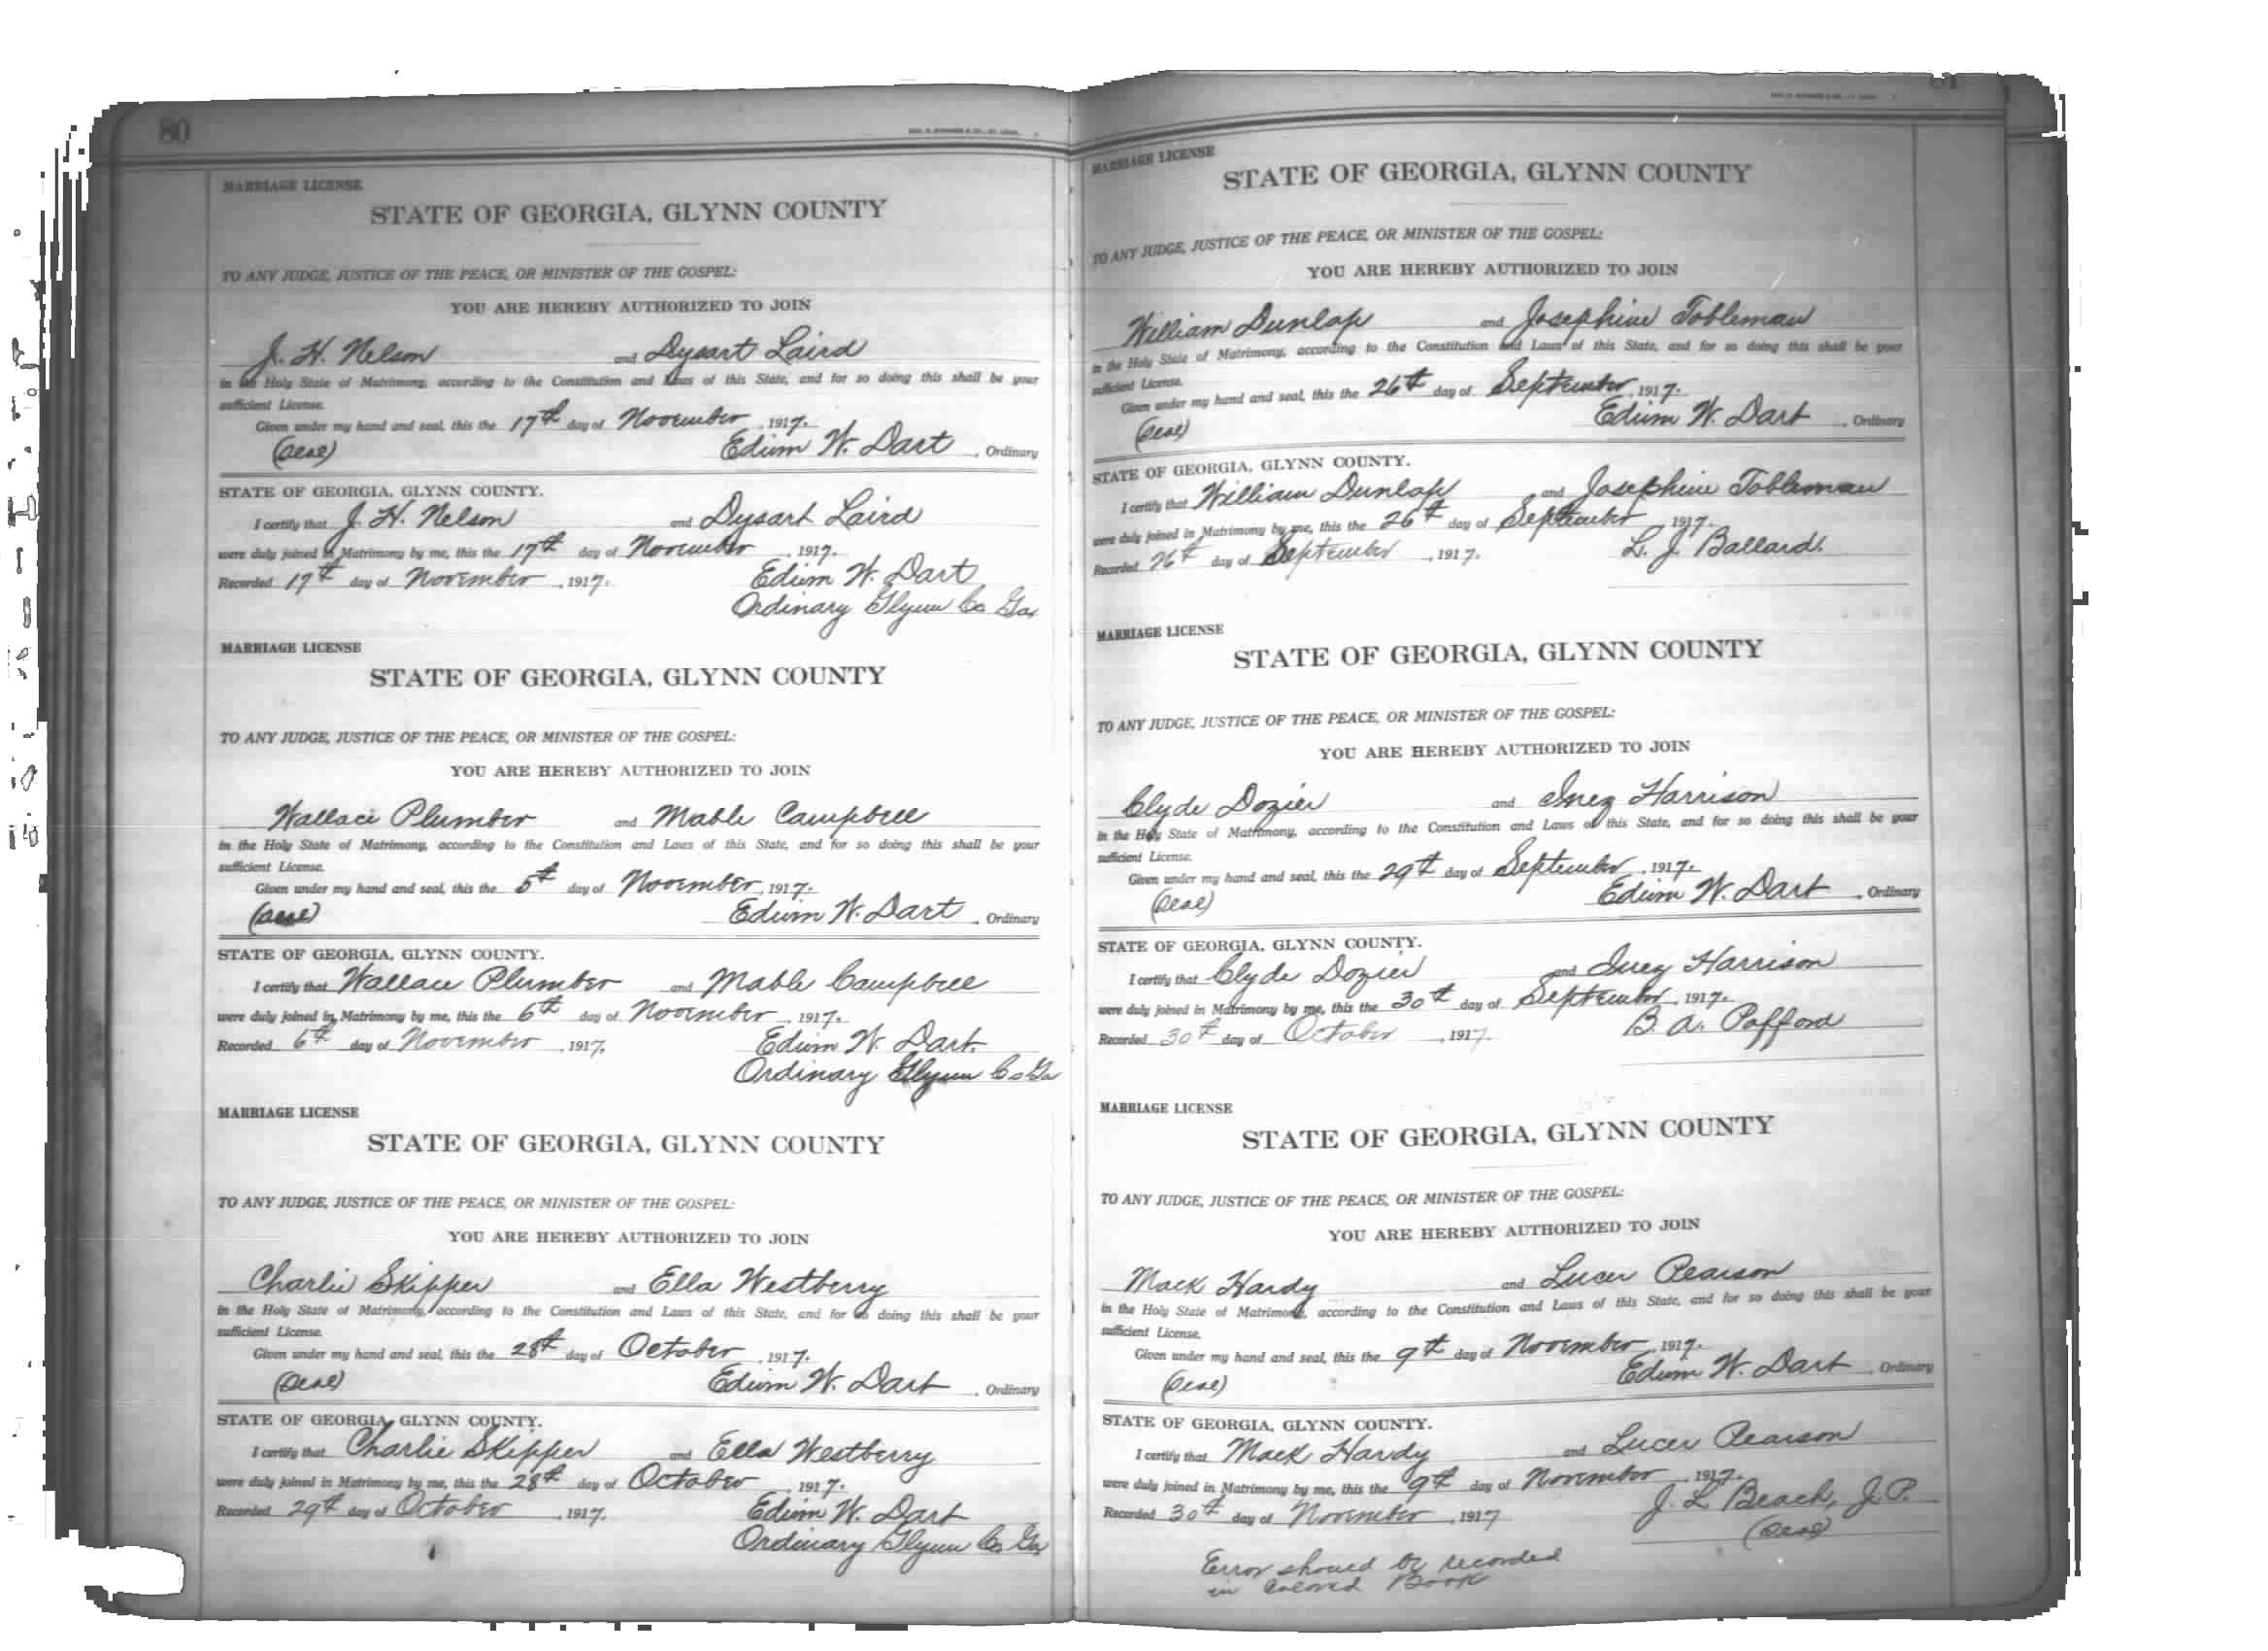 80
MARRIAGE LICENSE
STATE OF GEORGIA, GLYNN COUNTY
TO ANY JUDGE, JUSTICE OF THE PEACE, OR MINISTER OF THE GOSPEL:
YOU ARE HEREBY AUTHORIZED TO JOIN
J. H. Nelson and Dysart Laird
in the Holy State of Matrimony, according to the Constitution and Laws of this State, and for so doing this shall be your
sufficient License.
Given under my hand and seal, this the 17th day of November, 1917.
(Seal) Edwin W. Dart, Ordinary
STATE OF GEORGIA, GLYNN COUNTY.
I certify that J. H. Nelson and Dysart Laird
were duly joined in Matrimony by me, this the 17th day of November, 1917.
Recorded 17th day of November, 1917. Edwin W. Dart
Ordinary Glynn Co Ga
MARRIAGE LICENSE
STATE OF GEORGIA, GLYNN COUNTY
TO ANY JUDGE, JUSTICE OF THE PEACE, OR MINISTER OF THE GOSPEL:
YOU ARE HEREBY AUTHORIZED TO JOIN
Wallace Plumber and Mable Campbell
in the Holy State of Matrimony, according to the Constitution and Laws of this State, and for so doing this shall be your
sufficient License.
Given under my hand and seal, this the 5th day of November, 1917.
(Seal) Edwin W. Dart, Ordinary
STATE OF GEORGIA, GLYNN COUNTY.
I certify that Wallace Plumber and Mable Campbell
were duly joined in Matrimony by me, this the 6th day of November, 1917.
Recorded 6th day of November, 1917. Edwin W. Dart.
Ordinary Glynn Co Ga
MARRIAGE LICENSE
STATE OF GEORGIA, GLYNN COUNTY
TO ANY JUDGE, JUSTICE OF THE PEACE, OR MINISTER OF THE GOSPEL:
YOU ARE HEREBY AUTHORIZED TO JOIN
Charlie Skipper and Ella Westberry
in the Holy State of Matrimony, according to the Constitution and Laws of this State, and for so doing this shall be your
sufficient License.
Given under my hand and seal, this the 28th day of October, 1917.
(Seal) Edwin W. Dart, Ordinary
STATE OF GEORGIA, GLYNN COUNTY.
I certify that Charlie Skipper and Ella Westberry
were duly joined in Matrimony by me, this the 28th day of October, 1917.
Recorded 29th day of October, 1917. Edwin W. Dart
Ordinary Glynn Co Ga
81
MARRIAGE LICENSE
STATE OF GEORGIA, GLYNN COUNTY
TO ANY JUDGE, JUSTICE OF THE PEACE, OR MINISTER OF THE GOSPEL:
YOU ARE HEREBY AUTHORIZED TO JOIN
William Dunlap and Josephine Tobleman
in the Holy State of Matrimony, according to the Constitution and Laws of this State, and for so doing this shall be your
sufficient License.
Given under my hand and seal, this the 26th day of September, 1917.
(Seal) Edwin W. Dart, Ordinary
STATE OF GEORGIA, GLYNN COUNTY.
I certify that William Dunlap and Josephine Tobleman
were duly joined in Matrimony by me, this the 26th day of September, 1917.
Recorded 26th day of September, 1917. L. J. Ballard.
MARRIAGE LICENSE
STATE OF GEORGIA, GLYNN COUNTY
TO ANY JUDGE, JUSTICE OF THE PEACE, OR MINISTER OF THE GOSPEL:
YOU ARE HEREBY AUTHORIZED TO JOIN
Clyde Dozier and Inez Harrison
in the Holy State of Matrimony, according to the Constitution and Laws of this State, and for so doing this shall be your
sufficient License.
Given under my hand and seal, this the 29th day of September, 1917.
(Seal) Edwin W. Dart, Ordinary
STATE OF GEORGIA, GLYNN COUNTY.
I certify that Clyde Dozier and Inez Harrison
were duly joined in Matrimony by me, this the 30th day of September, 1917.
Recorded 30th day of October, 1917. B. A. Pafford
MARRIAGE LICENSE
STATE OF GEORGIA, GLYNN COUNTY
TO ANY JUDGE, JUSTICE OF THE PEACE, OR MINISTER OF THE GOSPEL:
YOU ARE HEREBY AUTHORIZED TO JOIN
Mack Hardy and Lucer Pearson
in the Holy State of Matrimony, according to the Constitution and Laws of this State, and for so doing this shall be your
sufficient License.
Given under my hand and seal, this the 9th day of November, 1917.
(Seal) Edwin W. Dart, Ordinary
STATE OF GEORGIA, GLYNN COUNTY.
I certify that Mack Hardy and Lucer Pearson
were duly joined in Matrimony by me, this the 9th day of November, 1917.
Recorded 30th day of November, 1917 J. L. Beach, J.P.
(Seal)
Error should be recorded
in Colored Book